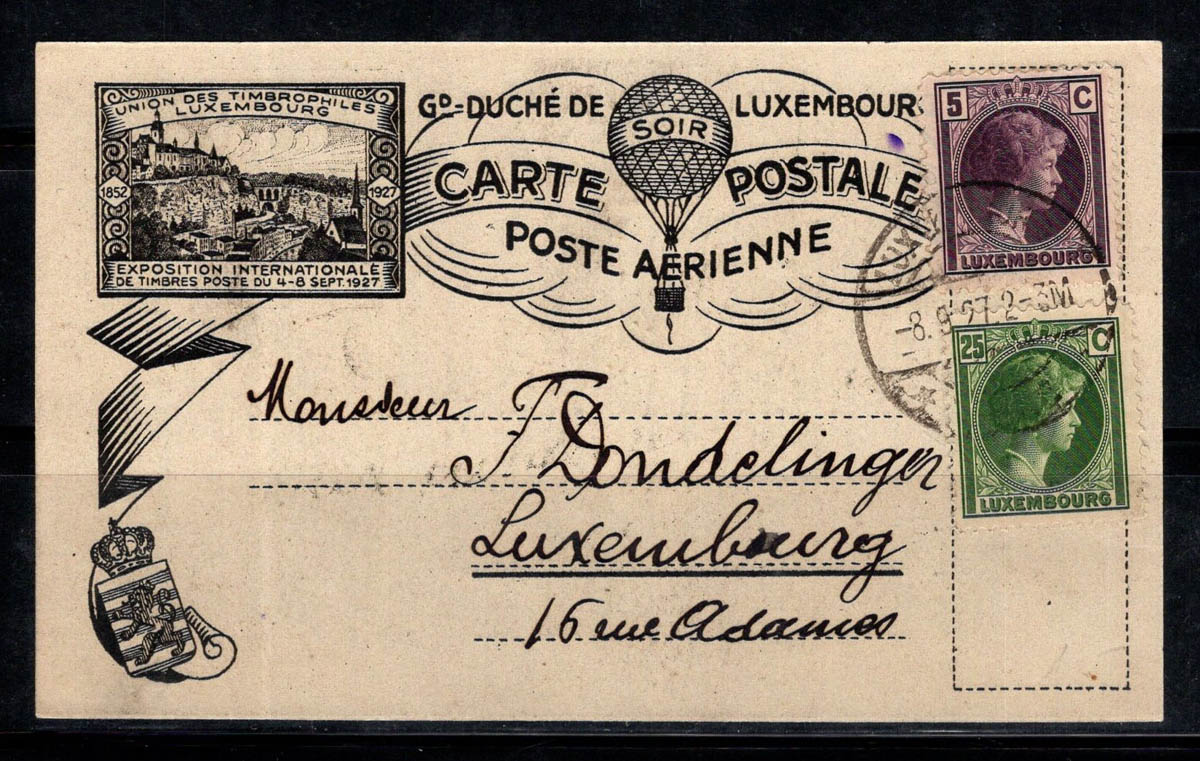 UNION DES TIMBROPHILES
LUXEMBOURG
1852 1927
EXPOSITION INTERNATIONALE
DE TIMBRES POSTE DU 4-8 SEPT. 1927
GD-DUCHÉ DE LUXEMBOUR
SOIR
CARTE POSTALE
POSTE AÉRIENNE
5 C
LUXEMBOURG
-8.9.27 2-3M
25 C
LUXEMBOURG
Monsieur
F Dondelinger
Luxembourg
16 rue Adames